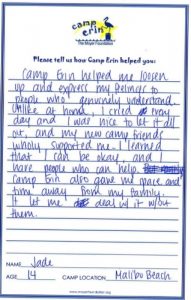 camp erin
The Moyer Foundation
Please tell us how Camp Erin helped you:
Camp Erin helped me loosen
up and express my feelings to
people who genuinely understand.
Unlike at home, I cried every
day and I was nice to let it all
out, and my new camp friends
wholy supported me. I learned
that I can be okay, and I
have people who can help.
Camp Erin also gave me space and
time away from my family.
It let me deal w/it w/out
them.
NAME Jade
AGE 14 CAMP LOCATION Malibu Beach